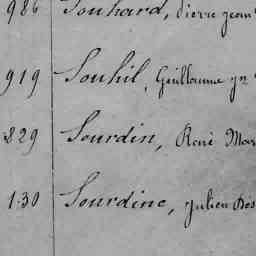 986 Souhard, Pierre Jean
919 Souhil, Guillaume
829 Sourdin, René Mar
130 Sourdine, Julien Des